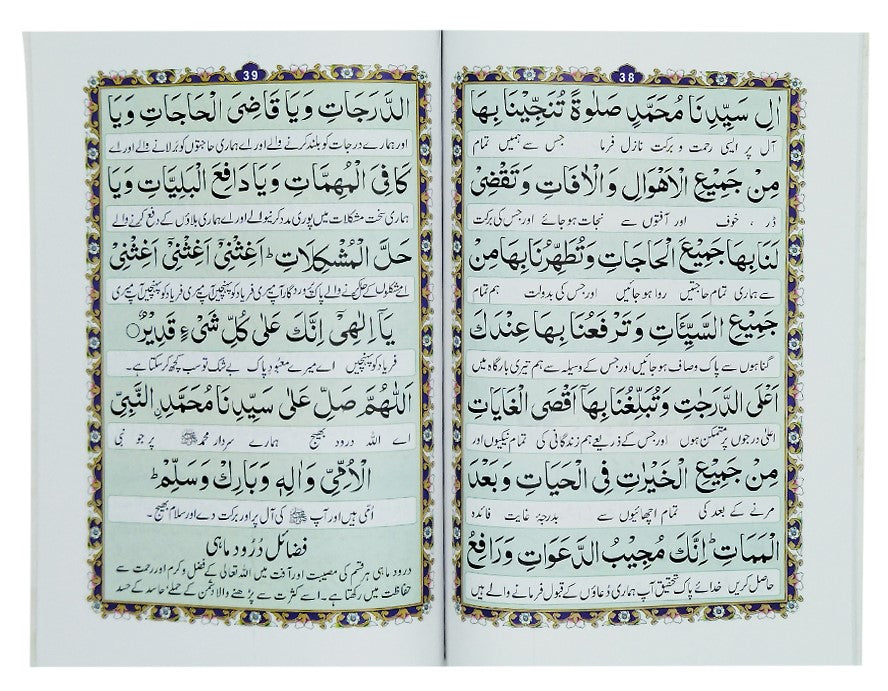 38
اٰلِ سَيِّدِنَا مُحَمَّدٍ صَلٰوةً تُنَجِّيْنَا بِهَا
آل پر ایسی رحمت و برکت نازل فرما جس سے ہمیں تمام
مِنْ جَمِيْعِ الْاَهْوَالِ وَالْاٰفَاتِ وَتَقْضِىْ
ڈر ، خوف اور آفتوں سے نجات ہو جائے اور جس کی برکت
لَنَا بِهَا جَمِيْعَ الْحَاجَاتِ وَتُطَهِّرُنَا بِهَا مِنْ
سے ہماری تمام حاجتیں روا ہو جائیں اور جس کی بدولت ہم تمام
جَمِيْعِ السَّيِّئَاتِ وَتَرْفَعُنَا بِهَا عِنْدَكَ
گناہوں سے پاک وصاف ہو جائیں اور جس کے وسیلہ سے ہم تیری بارگاہ میں
اَعْلَى الدَّرَجٰتِ وَتُبَلِّغُنَا بِهَآ اَقْصَى الْغَايَاتِ
اعلیٰ درجوں پر متمکن ہوں اور جس کے ذریعے ہم زندگانی کی تمام نیکیوں اور
مِنْ جَمِيْعِ الْخَيْرَاتِ فِى الْحَيَاتِ وَبَعْدَ
مرنے کے بعد کی تمام اچھائیوں سے بدرجۂ غایت فائدہ
الْمَمَاتِ ؕ اِنَّكَ مُجِيْبُ الدَّعَوَاتِ وَرَافِعُ
حاصل کریں خدائے پاک تحقیق آپ ہماری دُعاؤں کے قبول فرمانے والے ہیں
39
الدَّرَجَاتِ وَيَا قَاضِىَ الْحَاجَاتِ وَيَا
اور ہمارے درجات کو بلند کرنے والے اور اے ہماری حاجتوں کو بر لانے والے اور اے
كَافِىَ الْمُهِمَّاتِ وَيَا دَافِعَ الْبَلِيَّاتِ وَيَا
ہماری سخت مشکلات میں پوری مدد کرنیوالے اور اے ہماری بلاؤں کے دفع کرنے والے
حَلَّ الْمُشْكِلَاتِ ؕ اَغِثْنِىْ اَغِثْنِىْ اَغِثْنِىْ
اے مشکلوں کے حل کرنے والے پاک پروردگار آپ میری فریاد کو پہنچیں آپ میری فریاد کو پہنچیں آپ میری
يَآ اِلٰهِىْ اِنَّكَ عَلٰى كُلِّ شَىْءٍ قَدِيْرٌ ۝
فریاد کو پہنچیں اے میرے معبُود پاک بے شک تو سب کچھ کر سکتا ہے۔
اَللّٰهُمَّ صَلِّ عَلٰى سَيِّدِنَا مُحَمَّدِ نِ النَّبِىِّ
اے اللہ درود بھیج ہمارے سردار محمد ﷺ پر جو نبی
الْاُمِّىِّ وَاٰلِهٖ وَبَارِكْ وَسَلِّمْ ؕ
اُمی ہیں اور آپ ﷺ کی آل پر اور برکت دے اور سلام بھیج۔
فضائل دُرُود ماہی
درود ماہی ہر قسم کی مصیبت اور آفت میں اللہ تعالیٰ کے فضل و کرم اور رحمت سے
حفاظت میں رکھتا ہے۔ اسے کثرت سے پڑھنے والا دشمن کے حملے، حاسد کے حسد